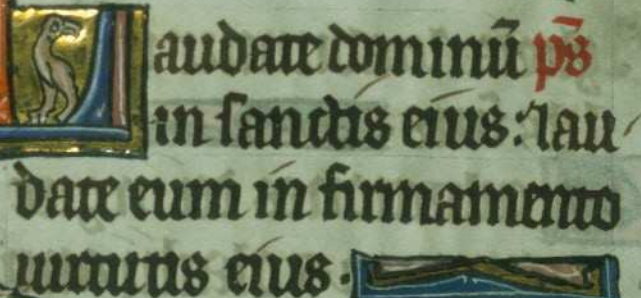 Laudate dominū p̄s
in sanctis eius: lau
date eum in firmamento
uirtutis eius.